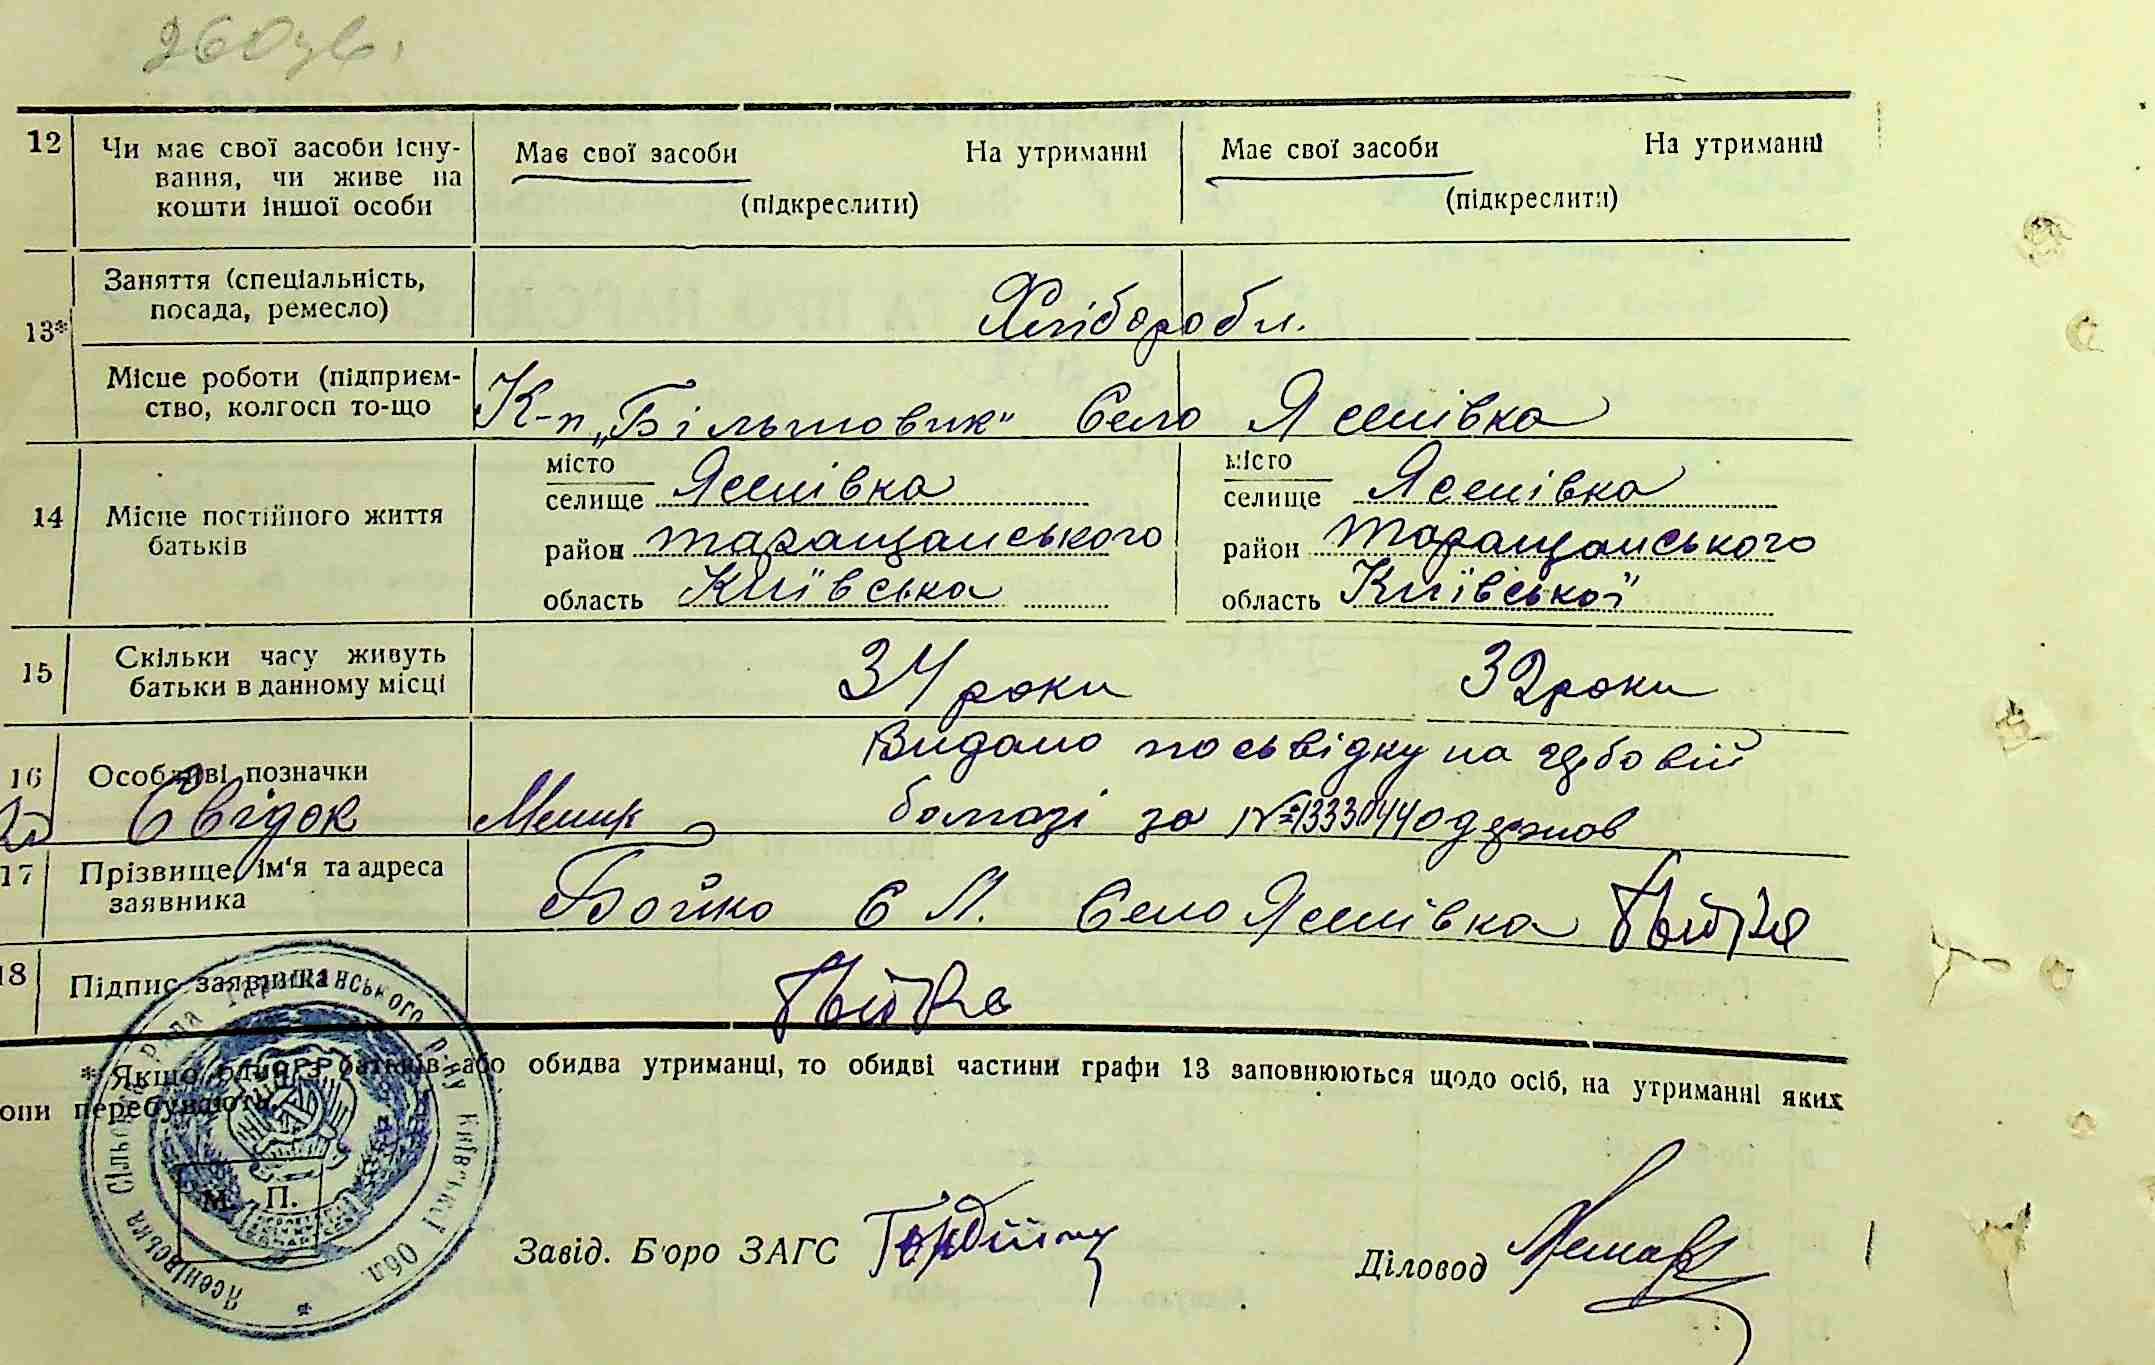 12 Чи має свої засоби існу-
вання, чи живе на
кошти іншої особи
Має свої засоби На утриманні
(підкреслити)
Має свої засоби На утриманні
(підкреслити)
13*
Заняття (спеціальність,
посада, ремесло)
Хлібороби.
Місце роботи (підприєм-
ство, колгосп то-що
К-п „Більшовик“ Село Ясенівка
14 Місце постійного життя
батьків
місто
селище Ясенівка
район таращанського
область Київська
місто
селище Ясенівка
район таращанського
область Київської
15 Скільки часу живуть
батьки в данному місці
34 роки 32 роки
16 Особливі позначки
Видано посьвідку на гербовій
бомазі за №1333044 одержав
Свідок
17 Прізвище, ім'я та адреса
заявника
Бойко Є Л. Село Ясенівка
18 Підпис заявника
* Якщо один з батьків або обидва утриманці, то обидві частини графи 13 заповнюються щодо осіб, на утриманні яких
они перебувають.
Ясенівська Сільська Рада Таращанського р-ну Київської Обл.
М. П.
Завід. Б'юро ЗАГС
Діловод